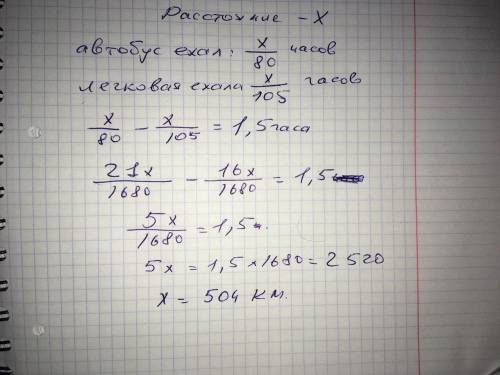 Расстояние - X
автобус ехал: x/80 часов
легковая ехала x/105 часов
x/80 - x/105 = 1,5 часа
21x/1680 - 16x/1680 = 1,5
5x/1680 = 1,5
5x = 1,5 × 1680 = 2520
x = 504 км.